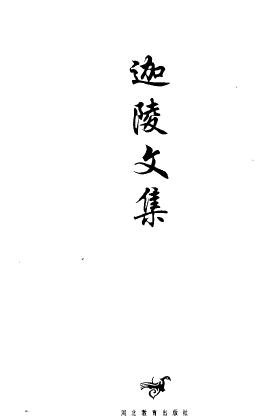 迦陵文集
河北教育出版社